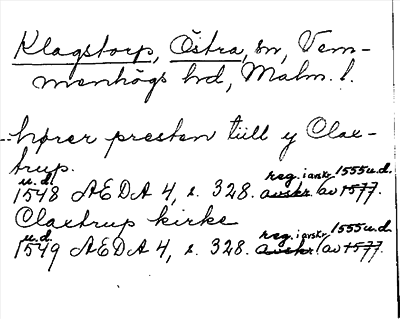 Klagstorp, Östra, sn, Vem-
menhögs hd, Malm. l.
..hører presten tiill y Clax-
trup.
u.d.
1548 AEDA 4, s. 328. avskr. reg. i avskr. 1555 u.d. (av 1577.
Claxtrup kirke
u.d.
1549 AEDA 4, s. 328. avskr. reg. i avskr. 1555 u.d. (av 1577.